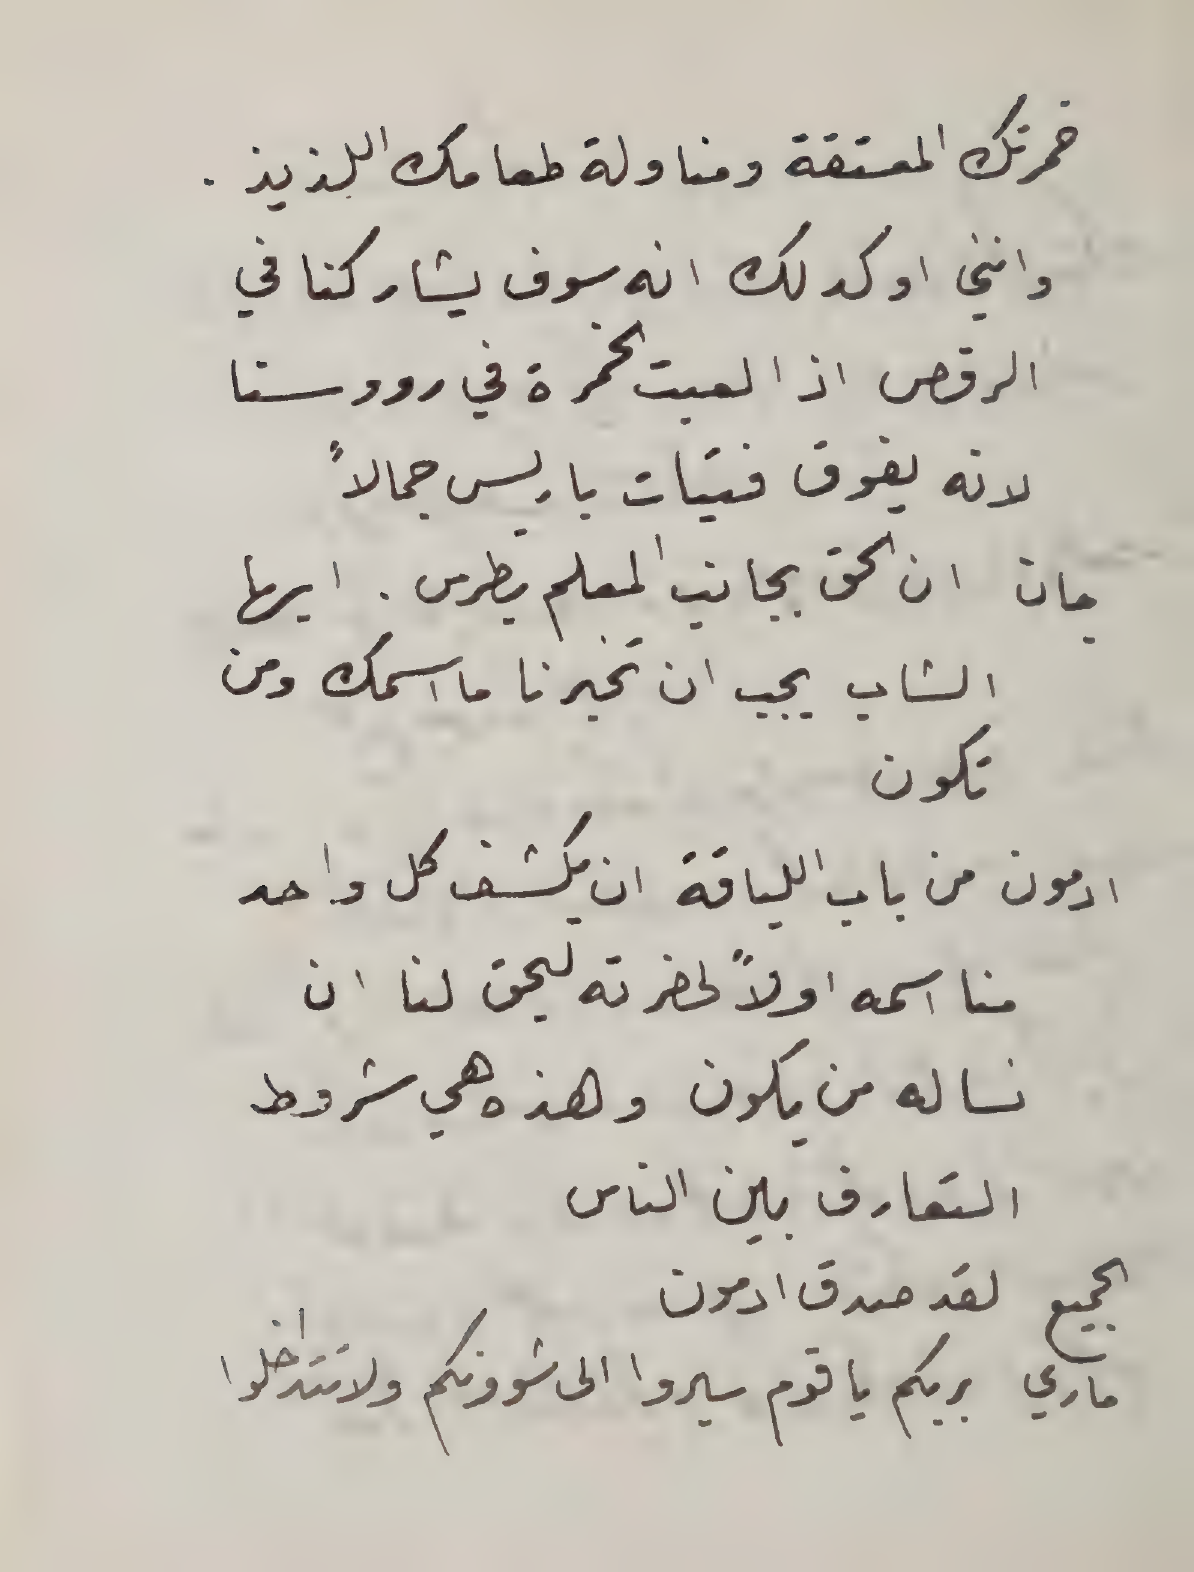 خمرتك المعتقة ومناولة طعامك اللذيذ .
وانني اوكد لك انه سوف يشاركنا في
الرقص اذا لعبت الخمرة في رووسنا
لانه يفوق فتيات باريس جمالاً
جان ان الحق بجانب المعلم بطرس . ايها
الشاب يجب ان تخبرنا ما اسمك ومن
تكون
ادمون من باب اللياقة ان يكشف كل واحد
منا اسمه اولاً لحضرته ليحق لنا ان
نساله من يكون وهذه هي شروط
التعارف بين الناس
الجميع لقد صدق ادمون
ماري بربكم يا قوم سيروا الى شوونكم ولا تتداخلوا